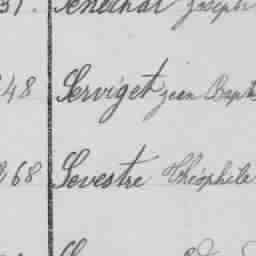 31. Sénéchal Joseph
48 Serviget jean Bapt
68 Sevestre Théophile